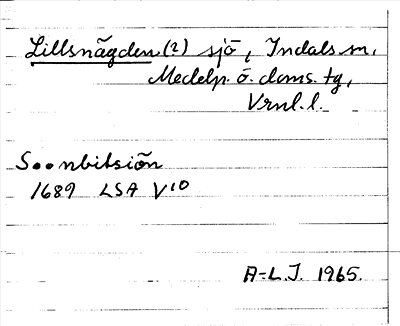 Lillsnägden (2) sjö, Indals sn,
Medelp. ö. doms. tg,
Vrnl. l.
S..nbitsiön
1689 LSA V10
A-L.J. 1965.